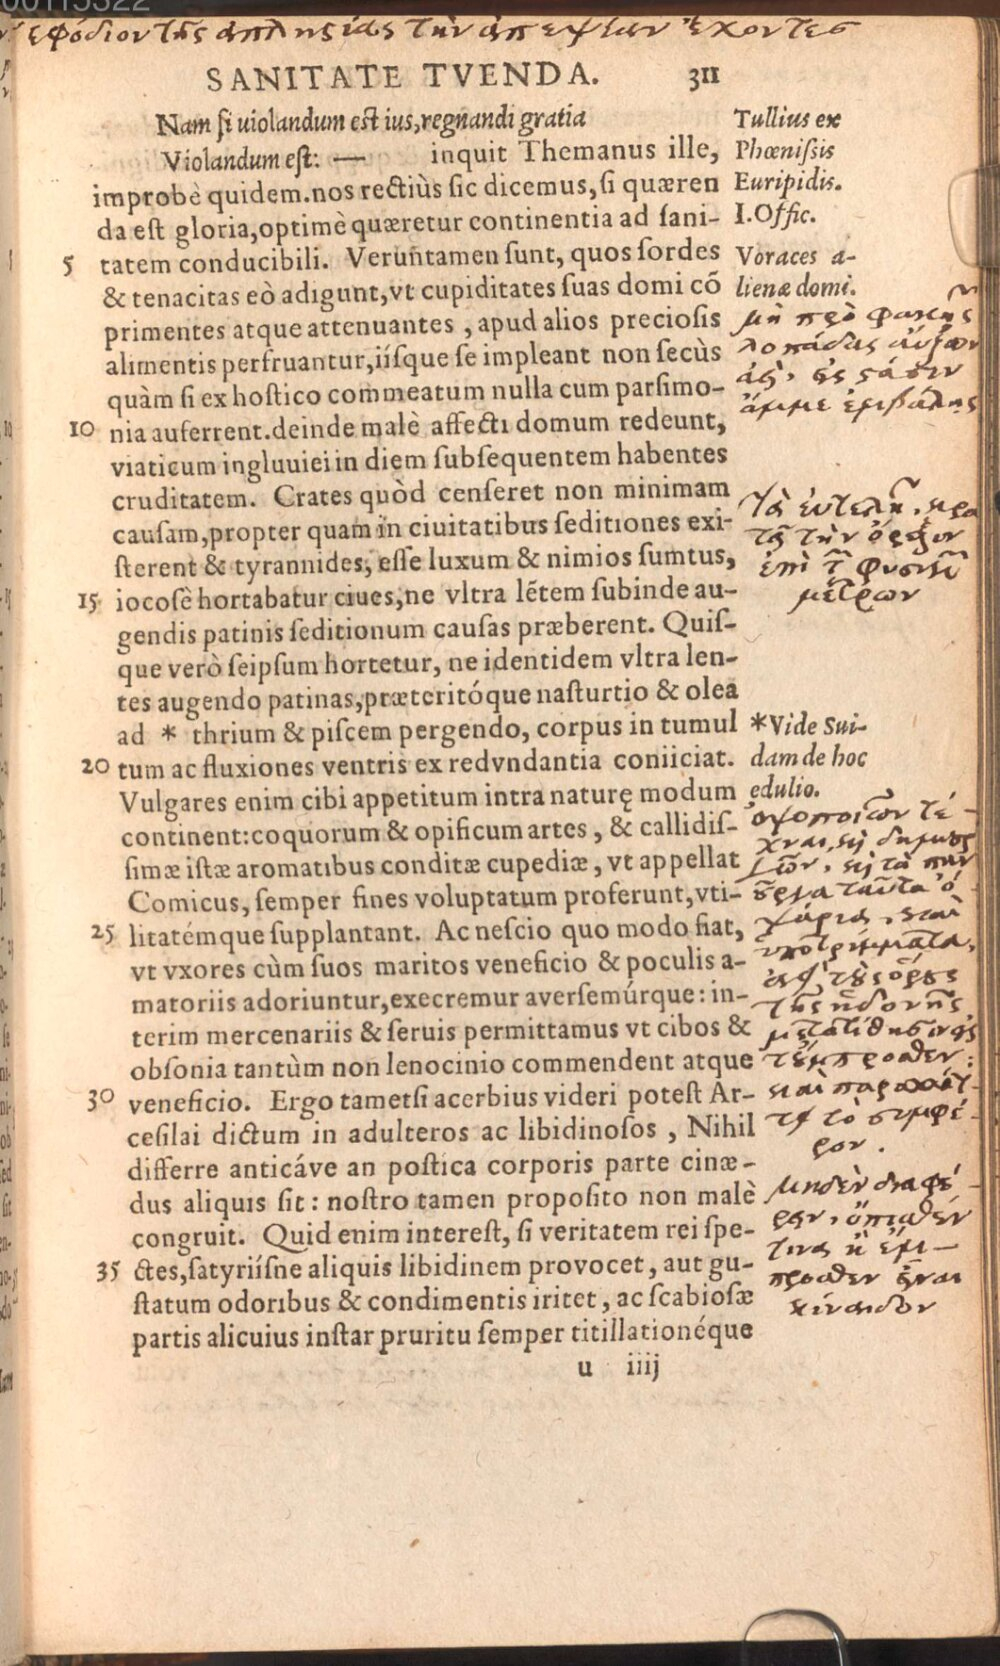 00115322
ἐφόδιον τῆς ἀπληστίας τὴν ἀπεψίαν ἔχοντες
SANITATE TVENDA. 311
Nam ſi uiolandum est ius, regnandi gratia
Violandum eſt: — inquit Themanus ille,
improbè quidem. nos rectiùs ſic dicemus, ſi quæren
da eſt gloria, optimè quæretur continentia ad ſani-
5 tatem conducibili. Veruntamen ſunt, quos ſordes
& tenacitas eò adigunt, vt cupiditates ſuas domi cō
primentes atque attenuantes, apud alios precioſis
alimentis perfruantur, iiſque ſe impleant non ſecùs
quàm ſi ex hoſtico commeatum nulla cum parſimo-
10 nia auferrent. deinde malè affecti domum redeunt,
viaticum ingluuiei in diem ſubſequentem habentes
cruditatem. Crates quòd cenſeret non minimam
cauſam, propter quam in ciuitatibus ſeditiones exi-
ſterent & tyrannides, eſſe luxum & nimios ſumtus,
15 iocosè hortabatur ciues, ne vltra lētem ſubinde au-
gendis patinis ſeditionum cauſas præberent. Quiſ-
que verò ſeipſum hortetur, ne identidem vltra len-
tes augendo patinas, præteritóque naſturtio & olea
ad * thrium & piſcem pergendo, corpus in tumul
20 tum ac fluxiones ventris ex redvndantia coniiciat.
Vulgares enim cibi appetitum intra naturę modum
continent: coquorum & opificum artes, & callidiſ-
ſimæ iſtæ aromatibus conditæ cupediæ, vt appellat
Comicus, ſemper fines voluptatum proferunt, vti-
25 litatémque ſupplantant. Ac neſcio quo modo fiat,
vt vxores cùm ſuos maritos veneficio & poculis a-
matoriis adoriuntur, execremur averſemúrque: in-
terim mercenariis & ſeruis permittamus vt cibos &
obſonia tantùm non lenocinio commendent atque
30 veneficio. Ergo tametſi acerbius videri poteſt Ar-
ceſilai dictum in adulteros ac libidinoſos, Nihil
differre anticáve an poſtica corporis parte cinæ-
dus aliquis ſit: noſtro tamen propoſito non malè
congruit. Quid enim intereſt, ſi veritatem rei ſpe-
35 ctes, ſatyriíſne aliquis libidinem provocet, aut gu-
ſtatum odoribus & condimentis iritet, ac ſcabioſæ
partis alicuius inſtar pruritu ſemper titillationéque
u iiij
Tullius ex
Phœniſsis
Euripidis.
I. Offic.
Voraces a-
lienæ domi.
μὴ πρὸ φακῆς
λοπάδας αὔξων
ἀεί, ἐς στάσιν
ἄμμε ἐμβάλῃς
Τὰ εὐτελῆ, κρα
τεῖ τὴν ὄρεξιν
ἐπὶ τῶν φυσικῶν
μέτρων
* Vide Sui-
dam de hoc
edulio.
ὀψοποιῶν τέ-
χναι, καὶ δημιουρ
γῶν, καὶ τὰ παν
οῦργα ταῦτα ὀ
ψάρια, καὶ
ὑποτρίμματα,
ἀεὶ τοὺς ὅρους
τῆς ἡδονῆς
μετατίθησιν εἰς
τοὔμπροσθεν:
καὶ παραλλάτ-
τει τὸ συμφέ-
ρον.
μηδὲν διαφέ-
ρειν, ὄπισθέν
τινα ἢ ἔμ-
προσθεν εἶναι
κίναιδον